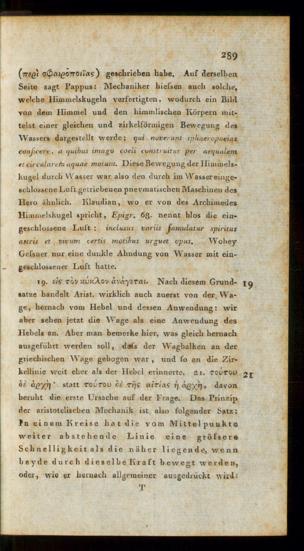 289
(περὶ σφαιροποιΐας) geschrieben habe. Auf derselben
Seite sagt Pappus: Mechaniker hießen auch solche,
welche Himmelskugeln verfertigten, wodurch ein Bild
von dem Himmel und den himmlischen Körpern mit-
telst einer gleichen und zirkelförmigen Bewegung des
Wassers dargestellt werde: qui noverunt sphaeropoeiam
conficere, a quibus imago coeli construitur per aequalem
et circularem aquae motum. Diese Bewegung der Himmels-
kugel durch Wasser war also den durch im Wasser einge-
schlossene Luft getriebenen pneumatischen Maschinen des
Hero ähnlich. Klaudian, wo er von des Archimedes
Himmelskugel spricht, Epigr. 68. nennt blos die ein-
geschlossene Luft: inclusus variis famulatur spiritus
astris et vivum certis motibus urguet opus. Wobey
Geßner nur eine dunkle Ahndung von Wasser mit ein-
geschlossener Luft hatte.
19. εἰς τὸν κύκλον ἀνάγεται. Nach diesem Grund- 19
satze handelt Arist. wirklich auch zuerst von der Wa-
ge, hernach vom Hebel und dessen Anwendung: wir
aber sehen jetzt die Wage als eine Anwendung des
Hebels an. Aber man bemerke hier, was gleich hernach
ausgeführt werden soll, daß der Wagbalken an der
griechischen Wage gebogen war, und so an die Zir-
kellinie weit eher als der Hebel erinnerte. 21. τούτου 21
δὲ ἀρχὴ· statt τούτου δὲ τῆς αἰτίας ἡ ἀρχὴ, davon
beruht die erste Ursache auf der Frage. Das Prinzip
der aristotelischen Mechanik ist also folgender Satz:
In einem Kreise hat die vom Mittelpunkte
weiter abstehende Linie eine größere
Schnelligkeit als die näher liegende, wenn
beyde durch dieselbe Kraft bewegt werden,
oder, wie er hernach allgemeiner ausgedrückt wird:
T